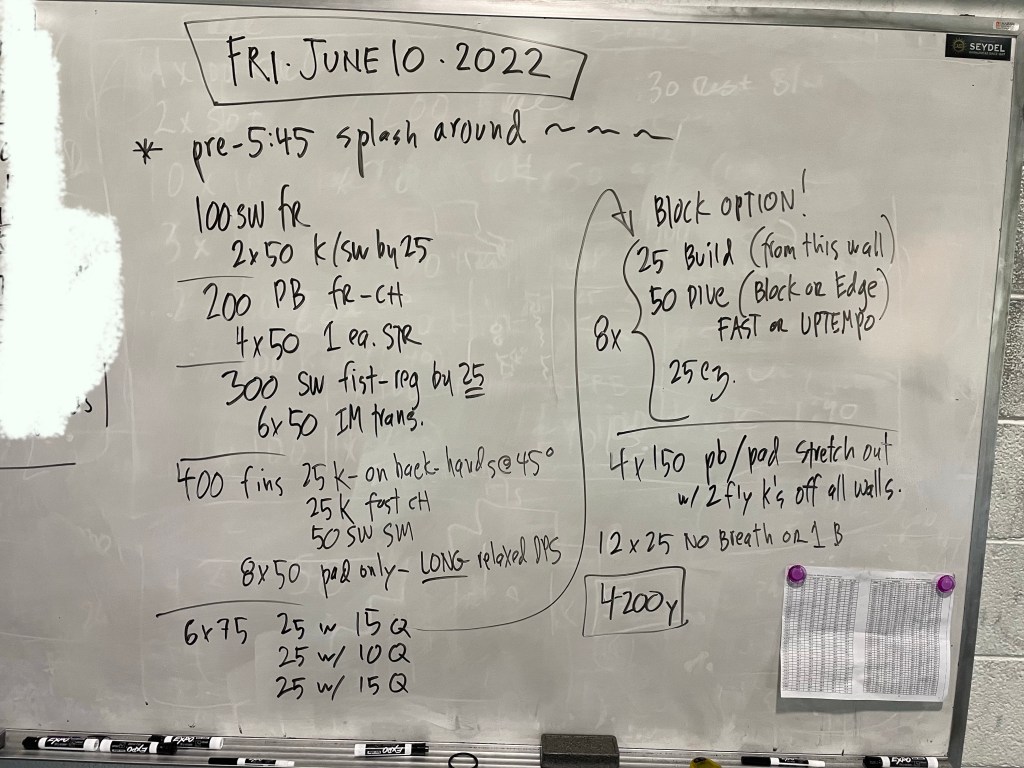 FRI. JUNE 10. 2022
* pre-5:45 splash around ~ ~ ~
100 sw fR
2x50 K/sw by 25
200 PB fR-CH
4x50 1 ea. STR
300 sw fist-reg by 25
6x50 IM trans.
400 fins 25 K-on back-hands@45°
25 K fast CH
50 SW SM
8x50 pad only- LONG relaxed DPS
6x75 25 w 15 Q
25 w/ 10 Q
25 w/ 15 Q
Block OPTION!
8x
25 Build (from this wall)
50 DIVE (Block OR Edge)
FAST OR UPTEMPO
25 ez.
4x150 pb/pad stretch out
w/ 2 fly K's off all walls.
12x25 NO Breath OR 1 B
4200y
SEYDEL
EXPO
EXPO